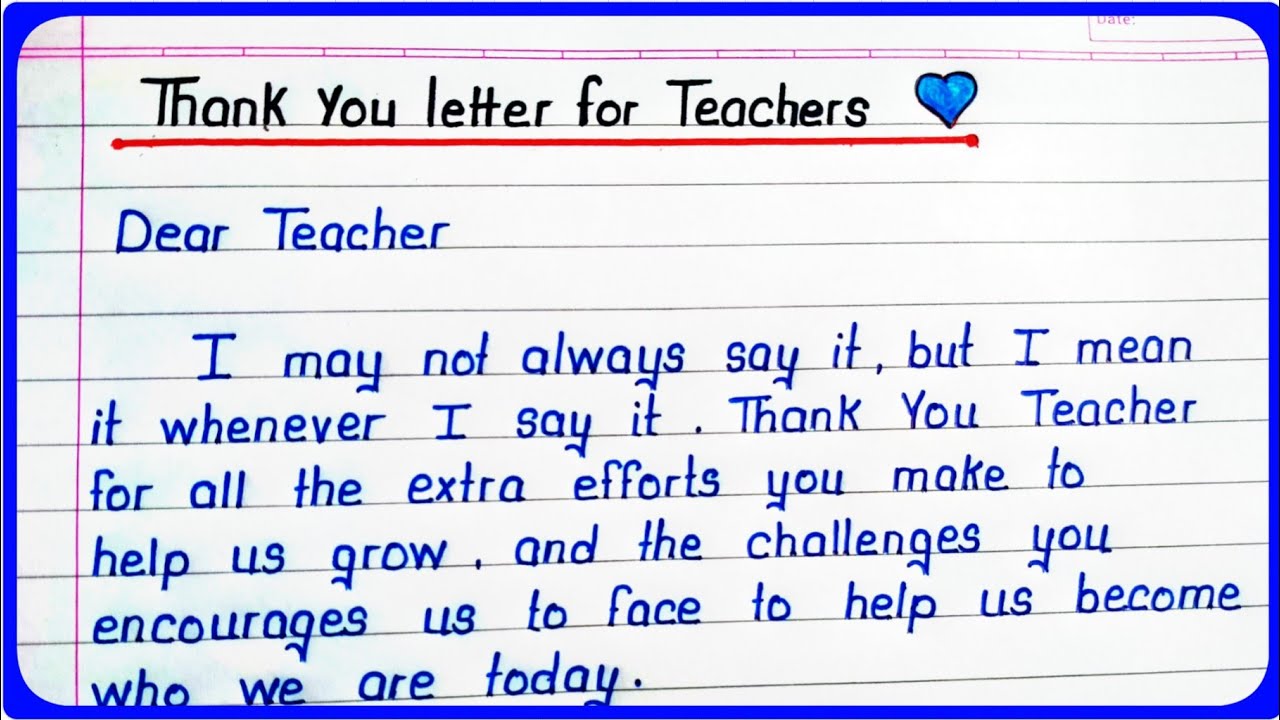 Date:
Thank You letter for Teachers
Dear Teacher
I may not always say it, but I mean
it whenever I say it . Thank You Teacher
for all the extra efforts you make to
help us grow . and the challenges you
encourages us to face to help us become
who we are today.